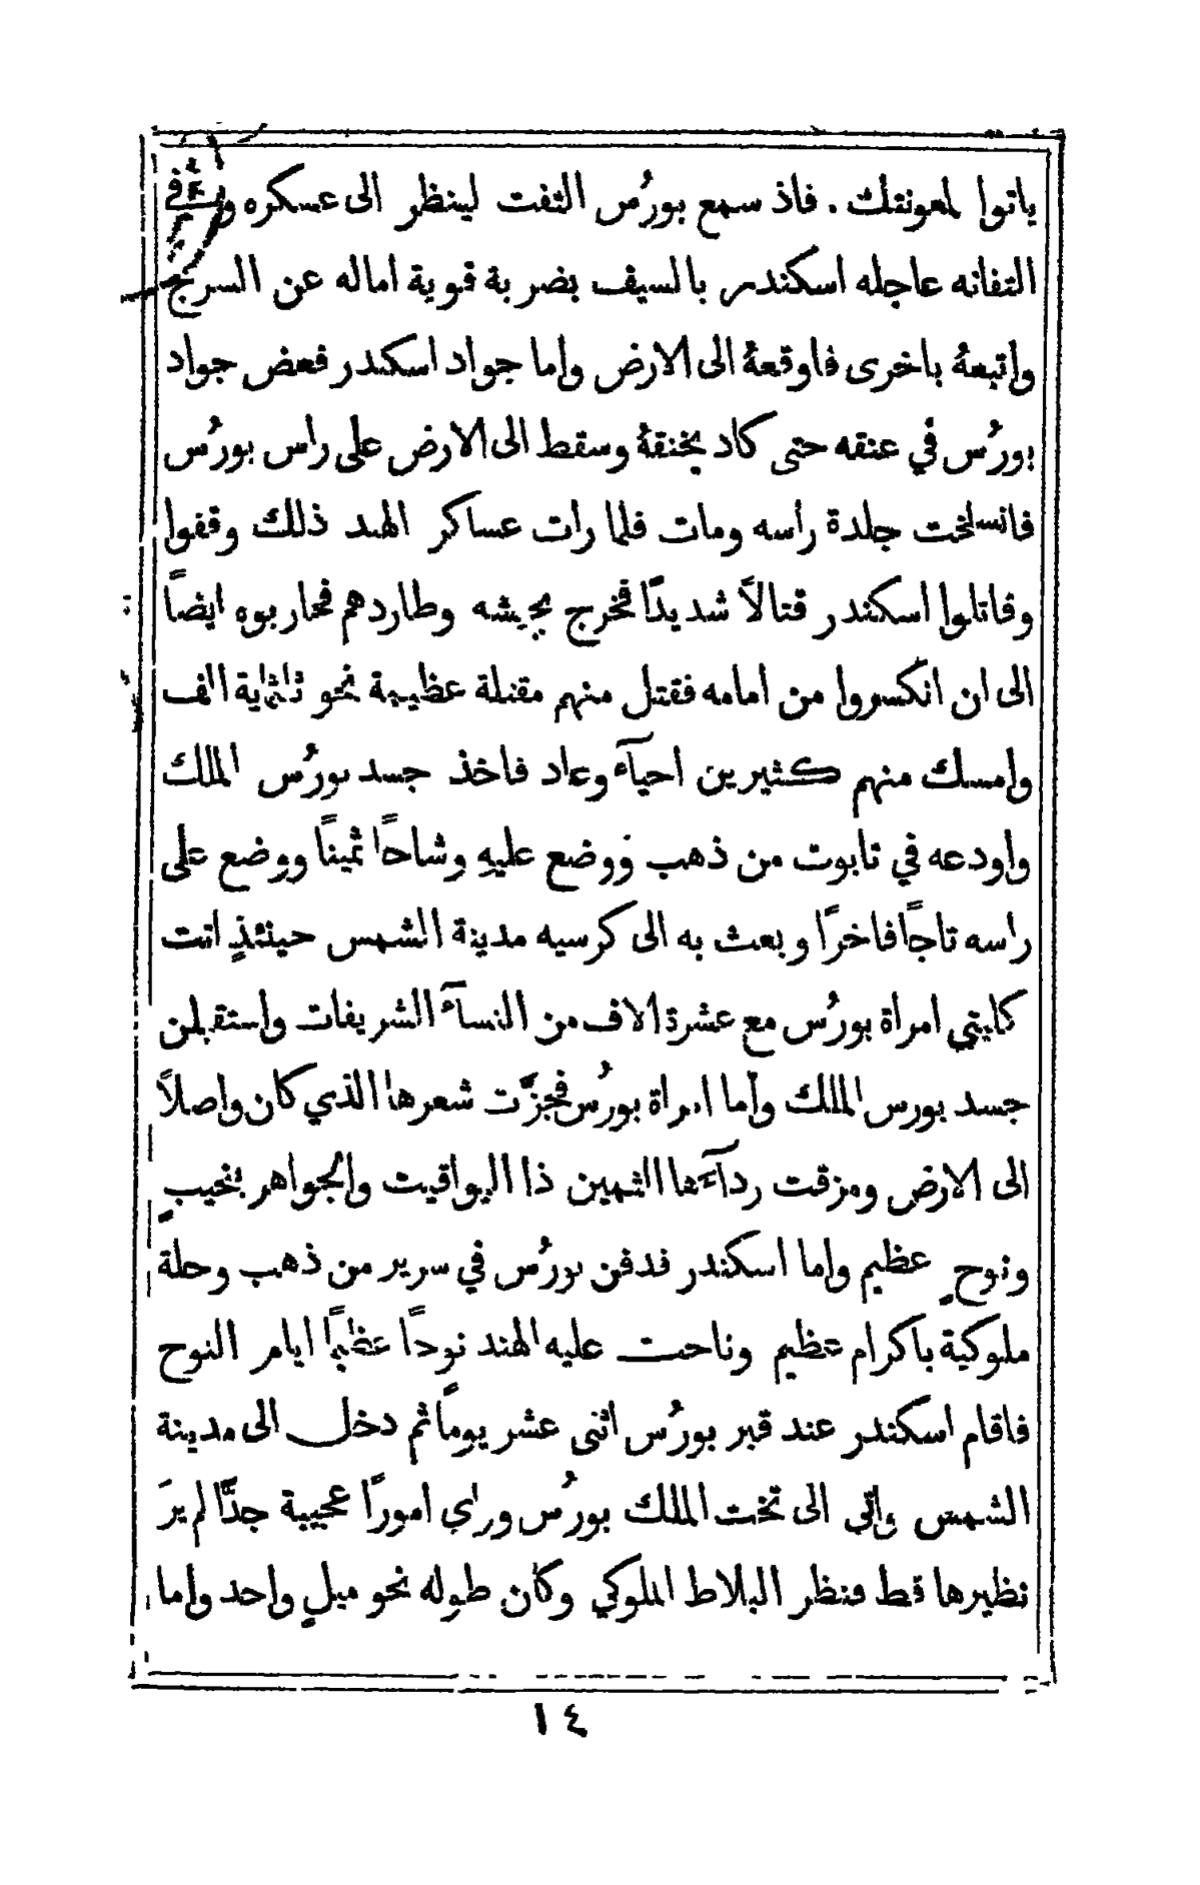 ياتوا لمعونتك . فاذ سمع بورُس التفت لينظر الى عسكره وفي
التفاته عاجله اسكندر بالسيف بضربة قوية اماله عن السرج
واتبعهُ باخرى فاوقعهُ الى الارض واما جواد اسكندر فعض جواد
بورُس في عنقه حتى كاد يخنقهُ وسقط الى الارض على راس بورُس
فانسلخت جلدة رأسه ومات فلما رات عساكر الهند ذلك وقفوا
وقاتلوا اسكندر قتالاً شديدًا فخرج بجيشه وطاردهم فحاربوه ايضاً
الى ان انكسروا من امامه فقتل منهم مقتلة عظيمة نحو ثلثماية الف
وامسك منهم كثيرين احيآء وعاد فاخذ جسد بورُس الملك
واودعه في تابوت من ذهب ووضع عليهِ وشاحًا ثمينًا ووضع على
راسه تاجًا فاخرًا وبعث به الى كرسيه مدينة الشمس حينئذٍ اتت
كليتي امراة بورُس مع عشرة الاف من النسآء الشريفات واستقبلن
جسد بورس الملك وأما امراة بورُس فجزَّت شعرها الذي كان واصلاً
الى الارض ومزقت ردآءَها الثمين ذا اليواقيت والجواهر بنحيبٍ
ونوحٍ عظيم واما اسكندر فدفن بورُس في سرير من ذهب وحلة
ملوكية باكرام عظيم وناحت عليه الهند نوحًا عظيمًا ايام النوح
فاقام اسكندر عند قبر بورُس اثنى عشر يومًا ثم دخل الى مدينة
الشمس واتى الى تخت الملك بورُس وراي امورًا عجيبة جدًّا لم يرَ
نظيرها قط فنظر البلاط الملوكي وكان طوله نحو ميلٍ واحد واما
١٤